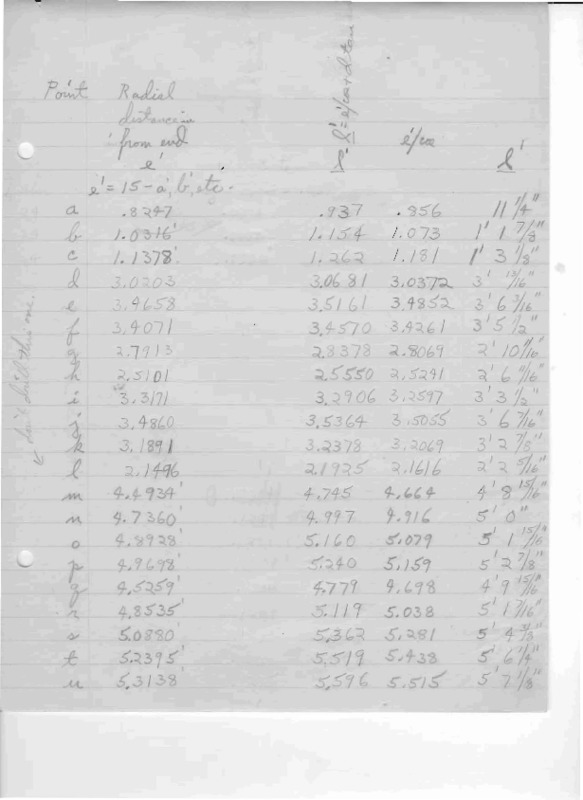 Point Radial
distance in
from end
e' l' l' = e'/cos + d tan e'/cos l'
e' = 15 - a', b', etc.
a .8247 .937 .856 11 1/4"
b 1.0316' 1.154 1.073 1' 1 7/8"
c 1.1378' 1.262 1.181 1' 3 1/8"
d 3.0203 3.0681 3.0372 3' 13/16"
e 3.4658 3.5161 3.4852 3' 6 3/16"
f 3.4071 3.4570 3.4261 3' 5 1/2"
g 2.7913 2.8378 2.8069 2' 10 1/16"
h 2.5101 2.5550 2.5241 2' 6 11/16"
i 3.3171 3.2906 3.2597 3' 3 1/2"
j 3.4860 3.5364 3.5055 3' 6 7/16"
k 3.1891 3.2378 3.2069 3' 2 7/8"
l 2.1496 2.1925 2.1616 2' 2 5/16"
m 4.4934' 4.745 4.664 4' 8 15/16"
n 4.7360' 4.997 4.916 5' 0"
o 4.8928' 5.160 5.079 5' 1 15/16"
p 4.9698' 5.240 5.159 5' 2 7/8"
q 4.5259' 4.779 4.698 4' 9 15/16"
r 4.8535' 5.119 5.038 5' 1 7/16"
s 5.0880' 5.362 5.281 5' 4 3/8"
t 5.2395' 5.519 5.438 5' 6 1/4"
u 5.3138' 5.596 5.515 5' 7 1/8"